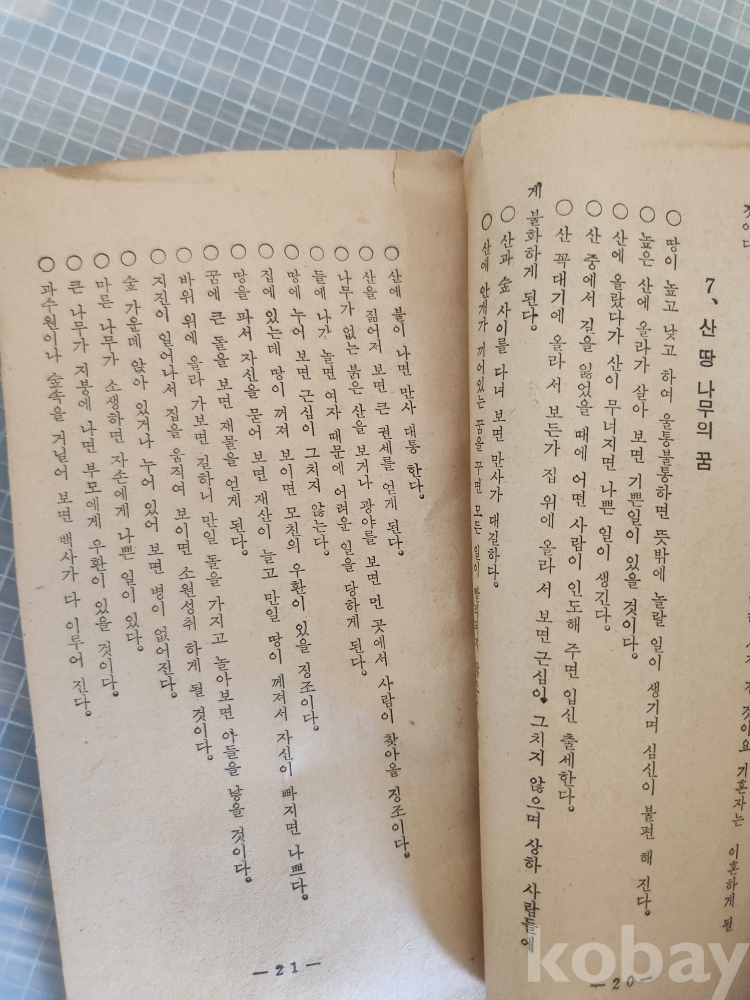 7、산 땅 나무의 꿈
○ 땅이 높고 낮고 하여 울퉁불퉁하면 뜻밖에 놀랄 일이 생기며 심신이 불편 해 진다.
○ 높은 산에 올라가 살아 보면 기쁜일이 있을 것이다.
○ 산에 올랐다가 산이 무너지면 나쁜 일이 생긴다.
○ 산 중에서 길을 잃었을 때에 어떤 사람이 인도해 주면 입신 출세한다.
○ 산 꼭대기에 올라 서 보든가 집 위에 올라 서 보면 근심이 그치지 않으며 상하 사람들에
게 불화하게 된다.
○ 산과 숲 사이를 다녀 보면 만사가 대길하다.
○ 산에 안개가 끼어있는 꿈을 꾸면 모든 일이
— 20 —
○ 산에 불이 나면 만사 대통 한다.
○ 산을 짊어저 보면 큰 권세를 얻게 된다.
○ 나무가 없는 붉은 산을 보거나 광야를 보면 먼 곳에서 사람이 찾아올 징조이다.
○ 들에 나가 놀면 여자 때문에 어려운 일을 당하게 된다.
○ 땅에 누어 보면 근심이 그치지 않는다.
○ 집에 있는데 땅이 꺼져 보이면 모친의 우환이 있을 징조이다.
○ 땅을 파서 자신을 묻어 보면 재산이 늘고 만일 땅이 께져서 자신이 빠지면 나쁘다.
○ 꿈에 큰 돌을 보면 재물을 얻게 된다.
○ 바위 위에 올라 가보면 길하니 만일 돌을 가지고 놀아보면 아들을 낳을 것이다.
○ 지진이 일어나서 집을 움직여 보이면 소원성취 하게 될 것이다.
○ 숲 가운데 앉아 있거나 누어 있어 보면 병이 없어진다.
○ 마른 나무가 소생하면 자손에게 나쁜 일이 있다.
○ 큰 나무가 지붕에 나면 부모에게 우환이 있을 것이다.
○ 과수원이나 숲속을 거닐어 보면 백사가 다 이루어 진다.
— 21 —
kobay